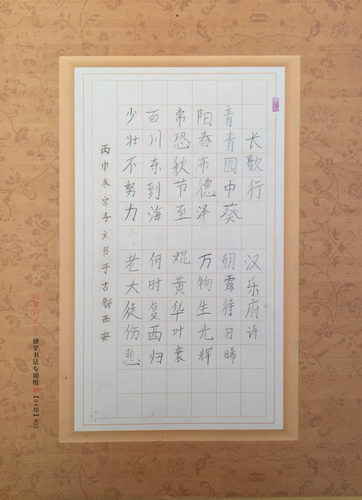 长歌行 汉乐府诗
青青园中葵 朝露待日晞
阳春布德泽 万物生光辉
常恐秋节至 焜黄华叶衰
百川东到海 何时复西归
少壮不努力 老大徒伤悲
丙申冬 书于古都西安
硬笔书法专用纸